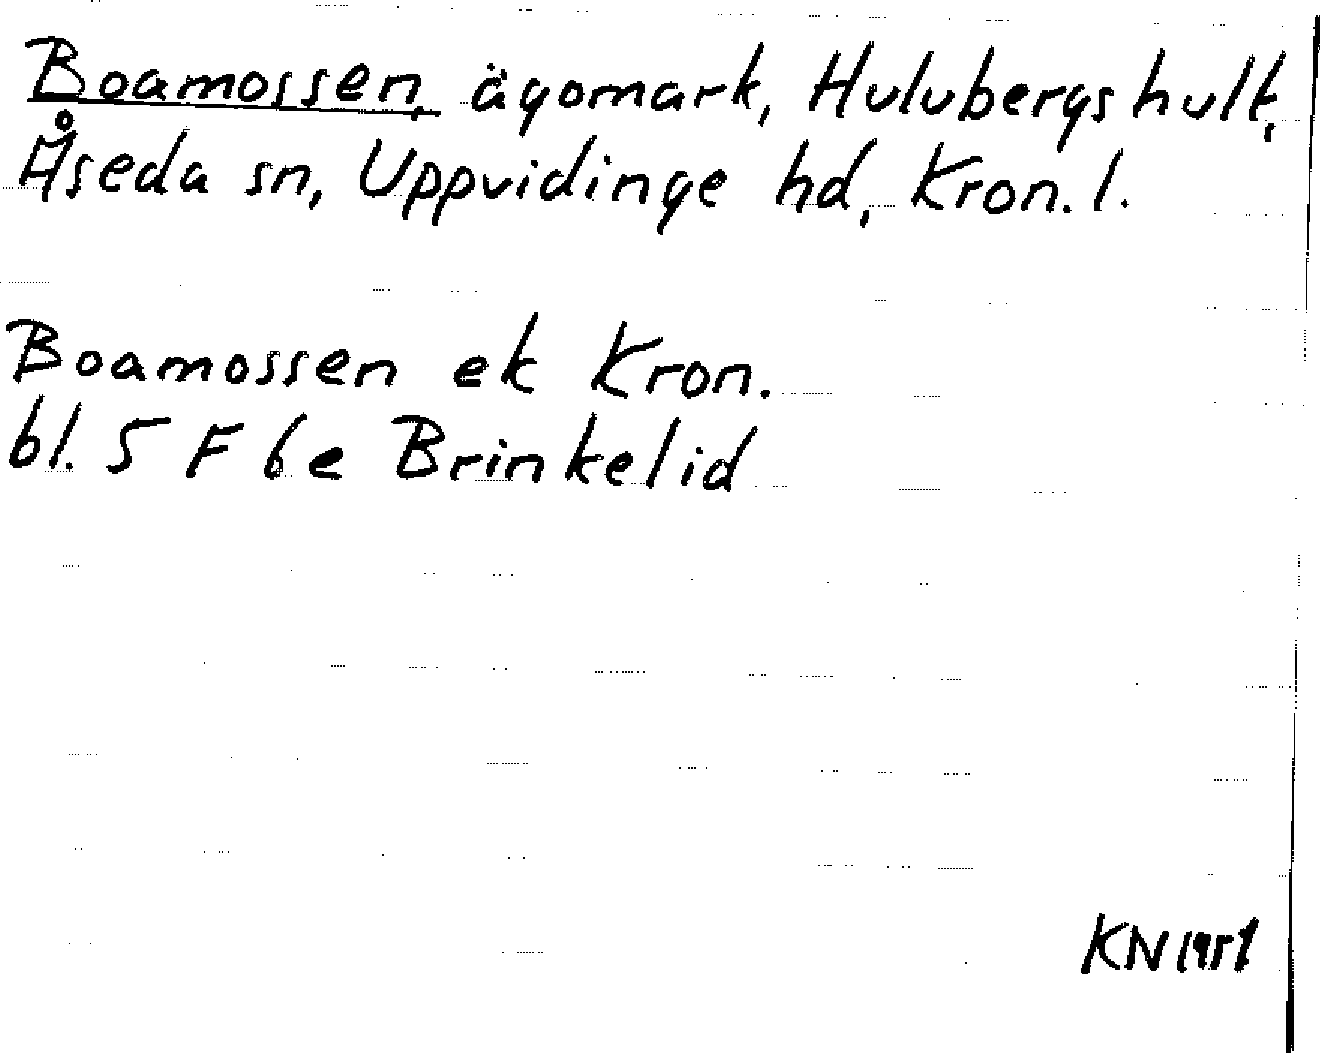 Boamossen, ägomark, Hulubergshult,
Åseda sn, Uppvidinge hd, Kron. l.
Boamossen ek Kron.
bl. 5 F 6e Brinkelid
KN 1951